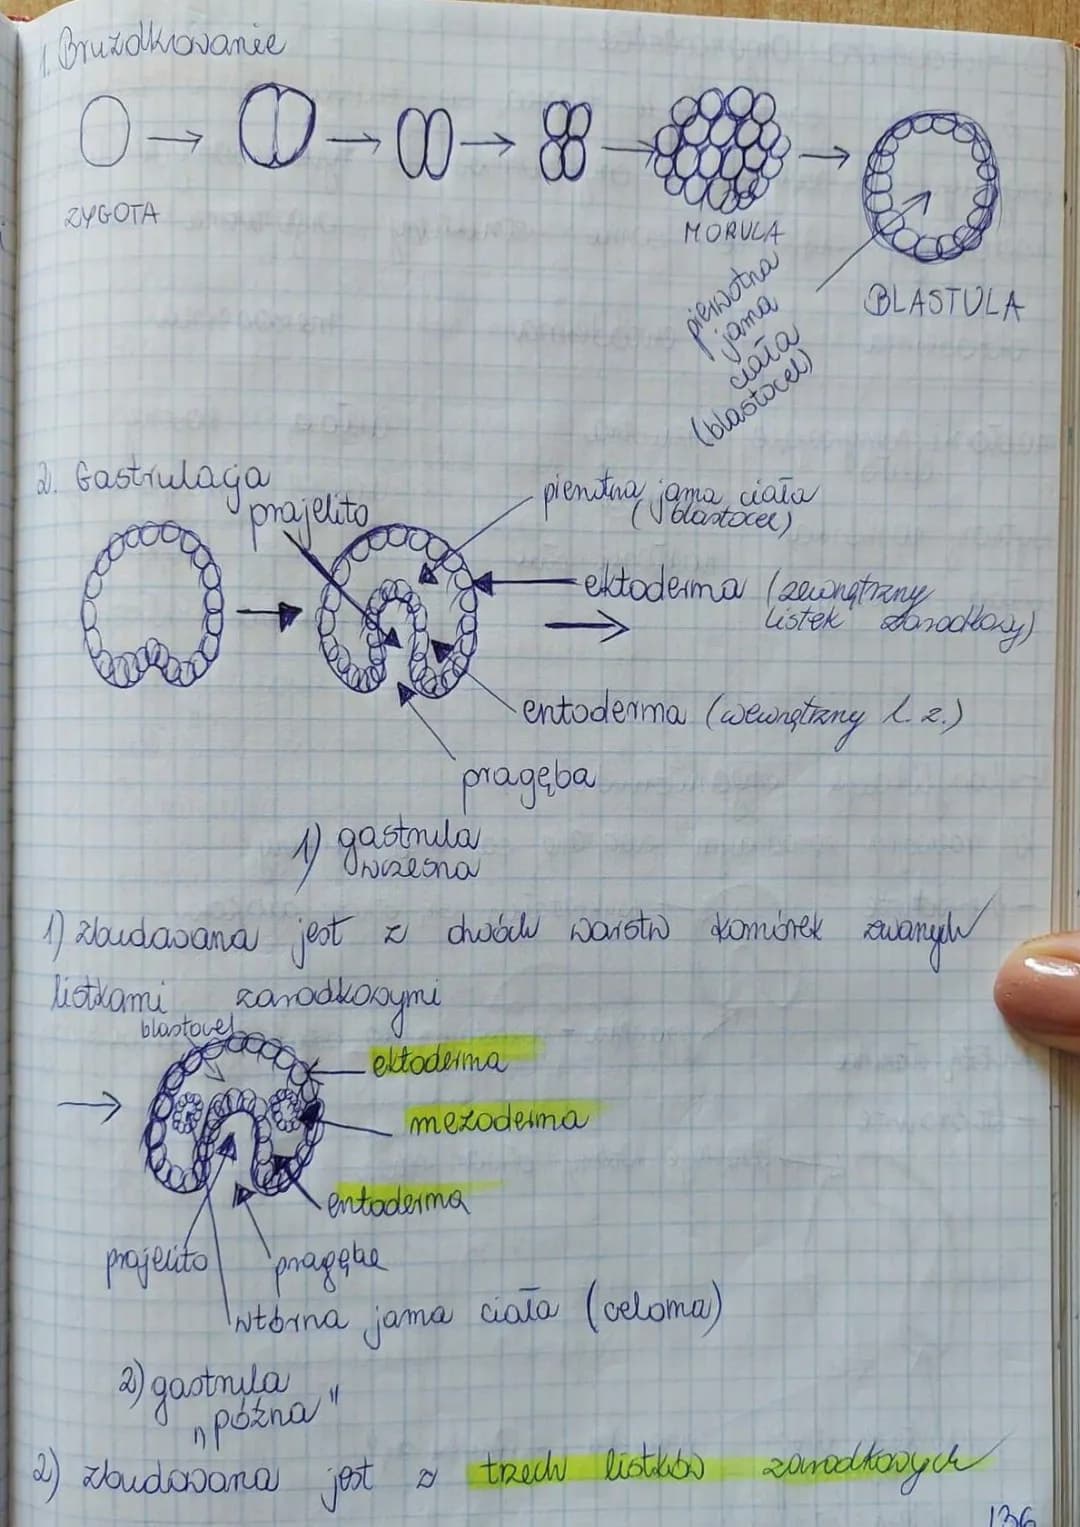 1. Bruzdkowanie
ZYGOTA
MORULA
BLASTULA
pierwotna
jama
ciała
(blastocel)
2. Gastrulacja
prajelito
pierwotna jama ciała
(blastocel)
ektoderma (zewnętrzny
listek zarodkowy)
entoderma (wewnętrzny l. z.)
pragęba
1) gastrula
wczesna
1) zbudowana jest z dwóch warstw komórek zwanych
listkami zarodkowymi
blastocel
ektoderma
mezoderma
entoderma
prajelito
pragęba
wtórna jama ciała (celoma)
2) gastrula
„późna"
2) zbudowana jest z trzech listków zarodkowych
136